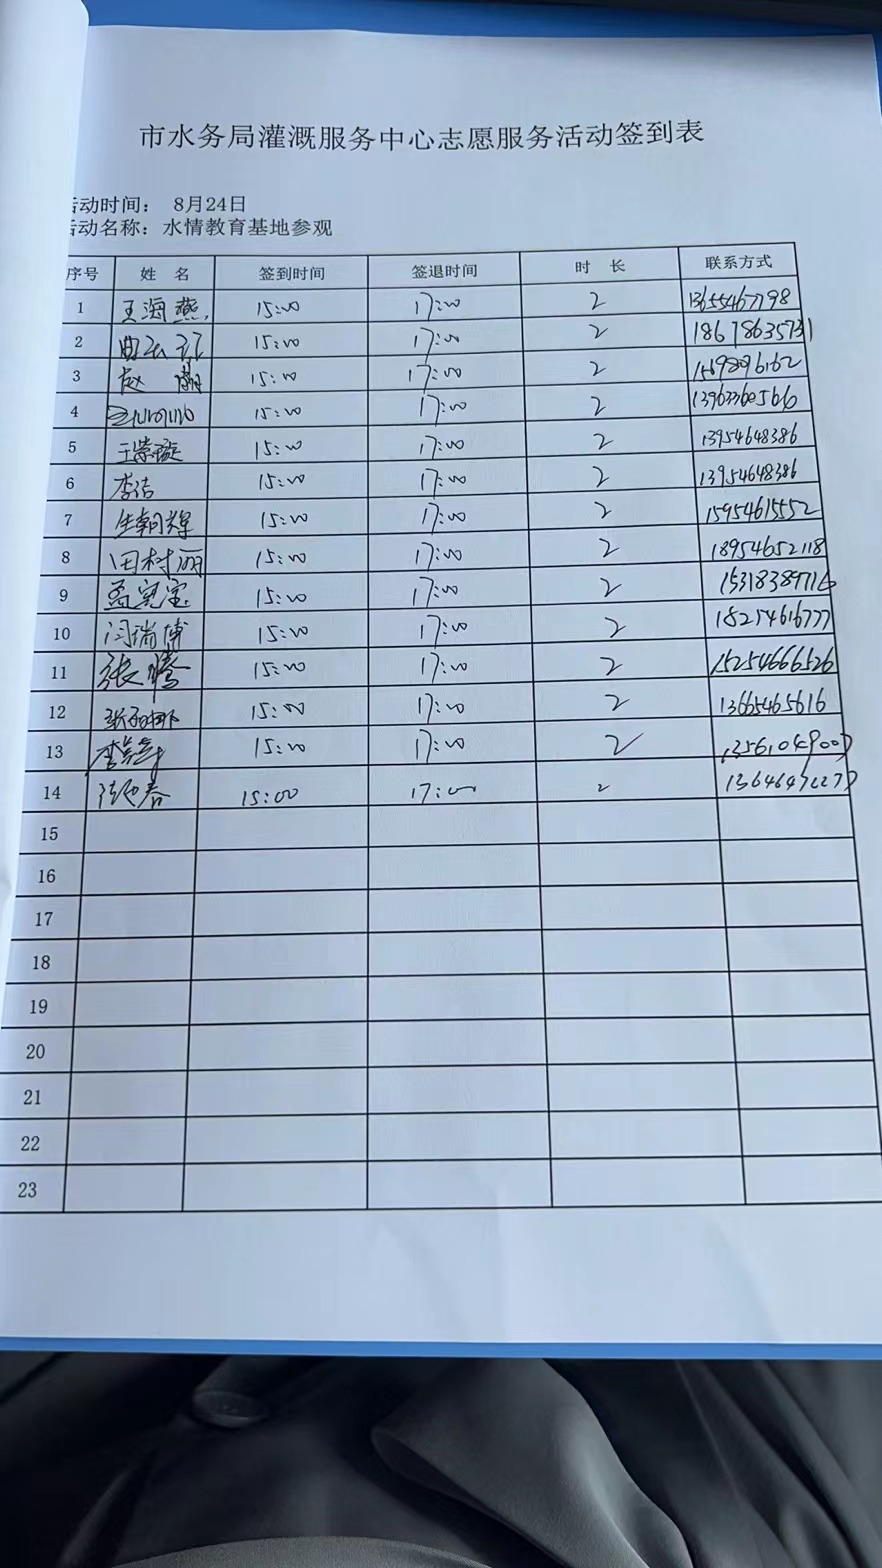 市水务局灌溉服务中心志愿服务活动签到表
活动时间： 8月24日
活动名称：水情教育基地参观
序号 姓 名 签到时间 签退时间 时 长 联系方式
1 王海燕 15:00 17:00 2 13655467798
2 15:00 17:00 2 18678635731
3 赵 15:00 17:00 2
4 15:00 17:00 2 13963360566
5 王崇璇 15:00 17:00 2 13954648386
6 李洁 15:00 17:00 2 13954648386
7 生朝辉 15:00 17:00 2 15954615552
8 田村丽 15:00 17:00 2 18954652118
9 孟宪宝 15:00 17:00 2 15318389716
10 闫瑞博 15:00 17:00 2 15274616777
11 张腾 15:00 17:00 2 15254666526
12 15:00 17:00 2 13665465616
13 15:00 17:00 2 13561049007
14 15:00 17:00 2
15
16
17
18
19
20
21
22
23